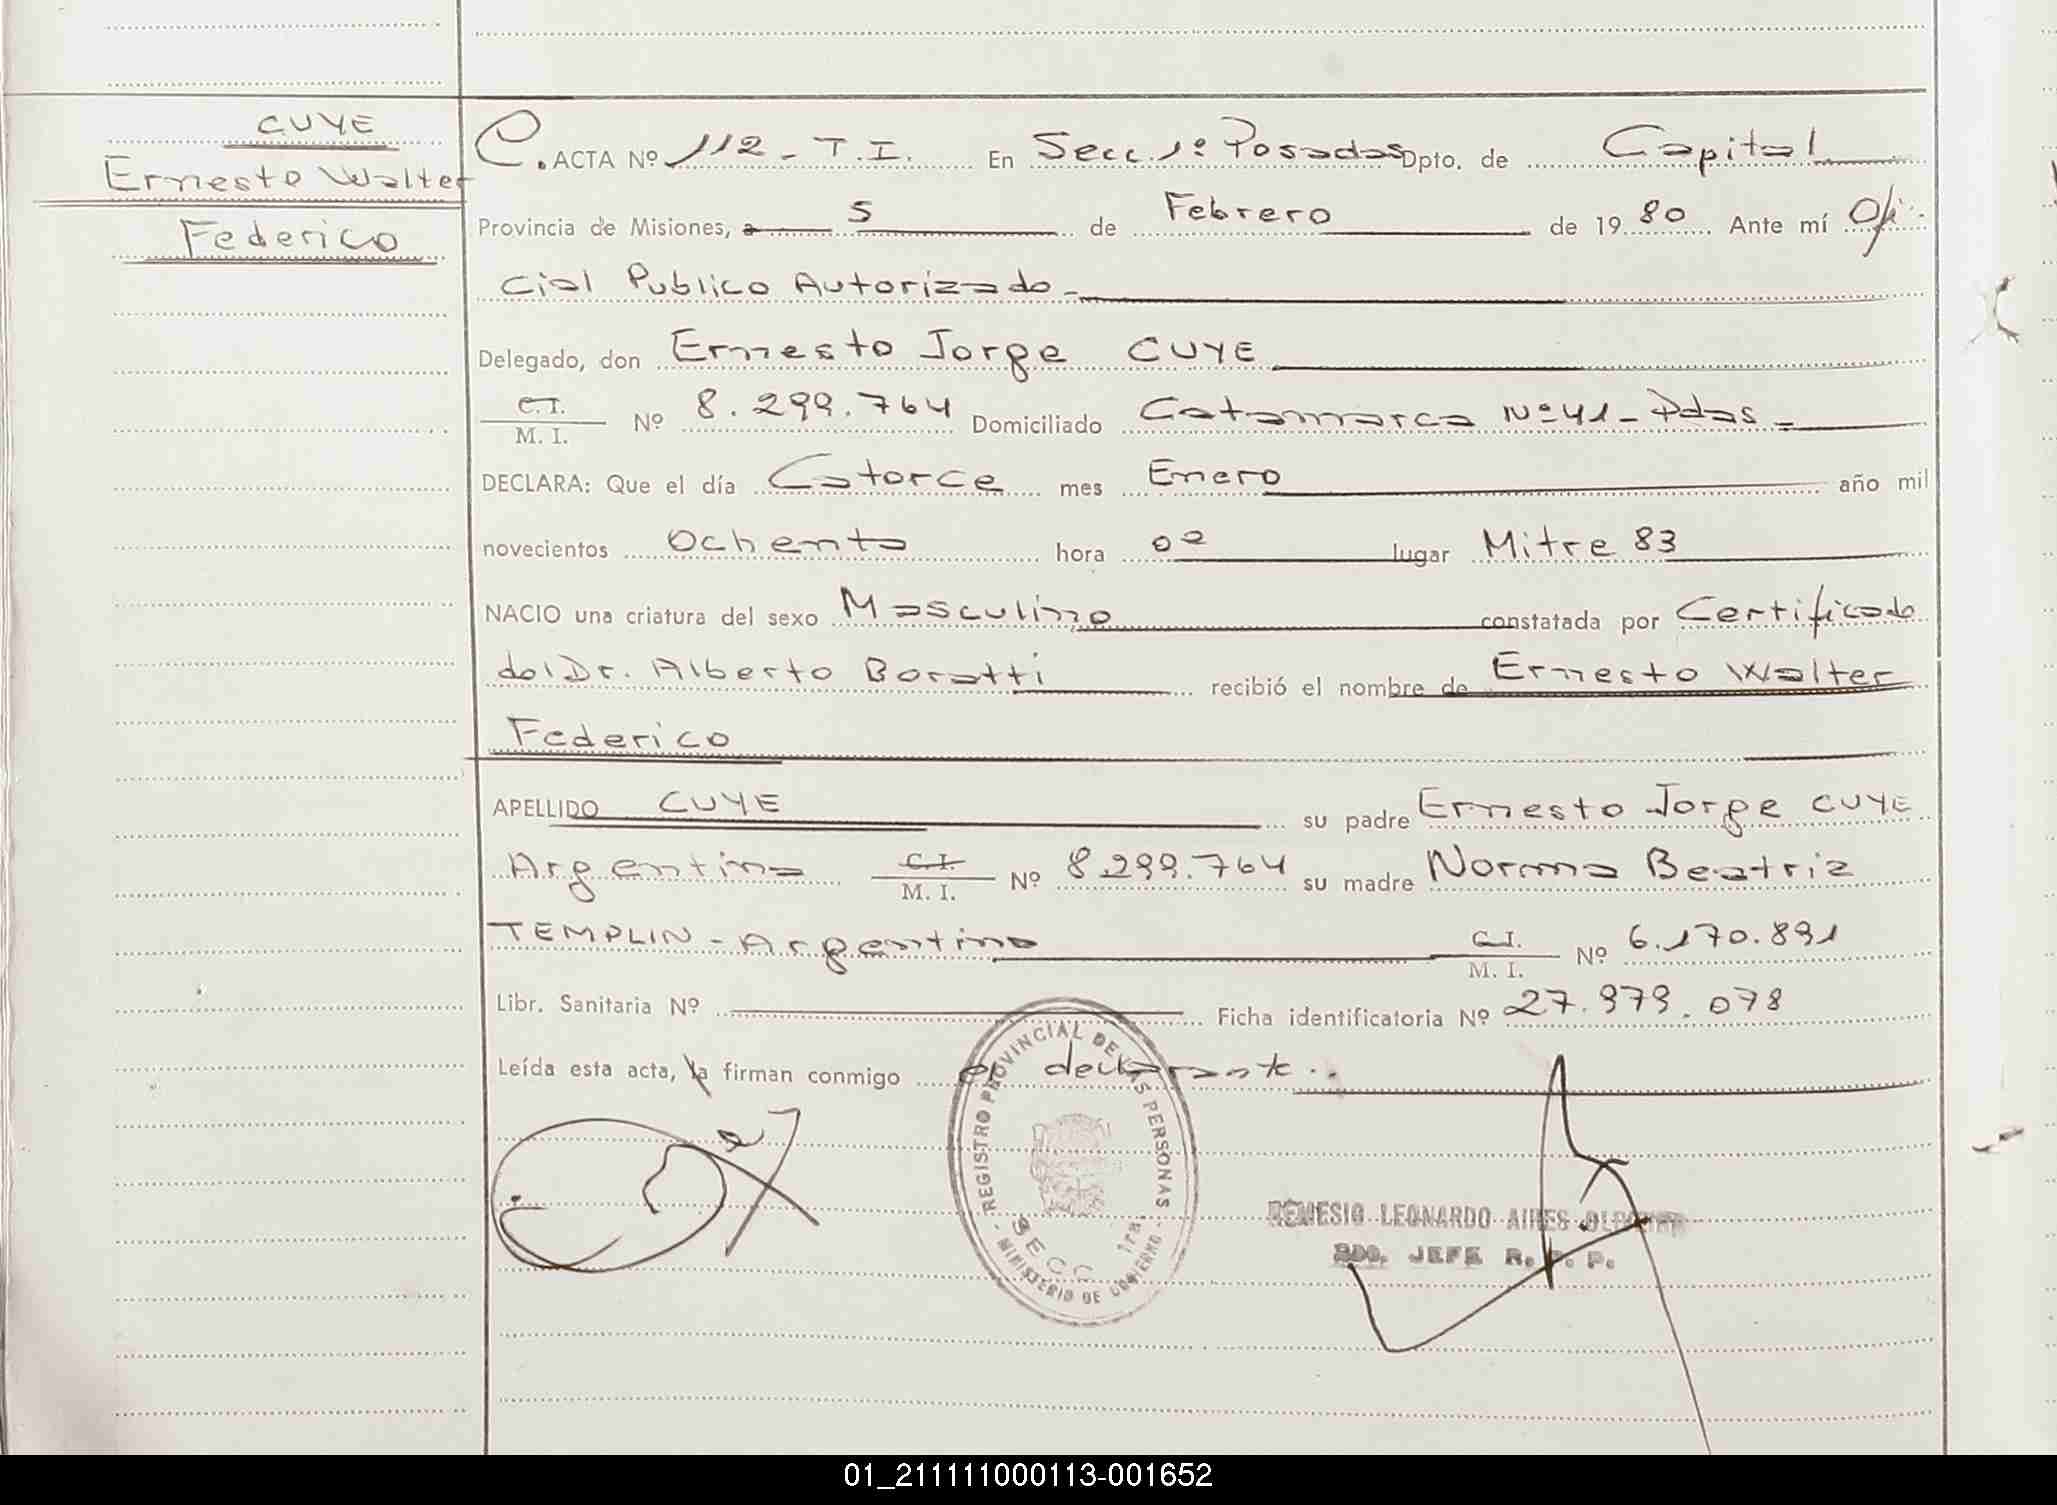 CUYE
Ernesto Walter
Federico
C. ACTA Nº 112 - T.I. En Secc. 1º Posadas Dpto. de Capital
Provincia de Misiones, a 5 de Febrero de 1980 Ante mí Ofi-
cial Publico Autorizado -
Delegado, don Ernesto Jorge CUYE
C.I.
M. I. Nº 8.299.764 Domiciliado Catamarca Nº 41 - Pdas -
DECLARA: Que el día Catorce mes Enero año mil
novecientos Ochenta hora 02 lugar Mitre 83
NACIO una criatura del sexo Masculino constatada por Certificado
del Dr. Alberto Boratti recibió el nombre de Ernesto Walter
Federico
APELLIDO CUYE su padre Ernesto Jorge CUYE
Argentino C.I.
M. I. Nº 8.299.764 su madre Norma Beatriz
TEMPLIN - Argentina C.I.
M. I. Nº 6.170.891
Libr. Sanitaria Nº Ficha identificatoria Nº 27.979.078
Leída esta acta, la firman conmigo el declarante.
REGISTRO PROVINCIAL DE LAS PERSONAS
SECC 1ra.
- MINISTERIO DE GOBIERNO -
REMESIO LEONARDO AIRES
2DO. JEFE R. P. P.
01_211111000113-001652